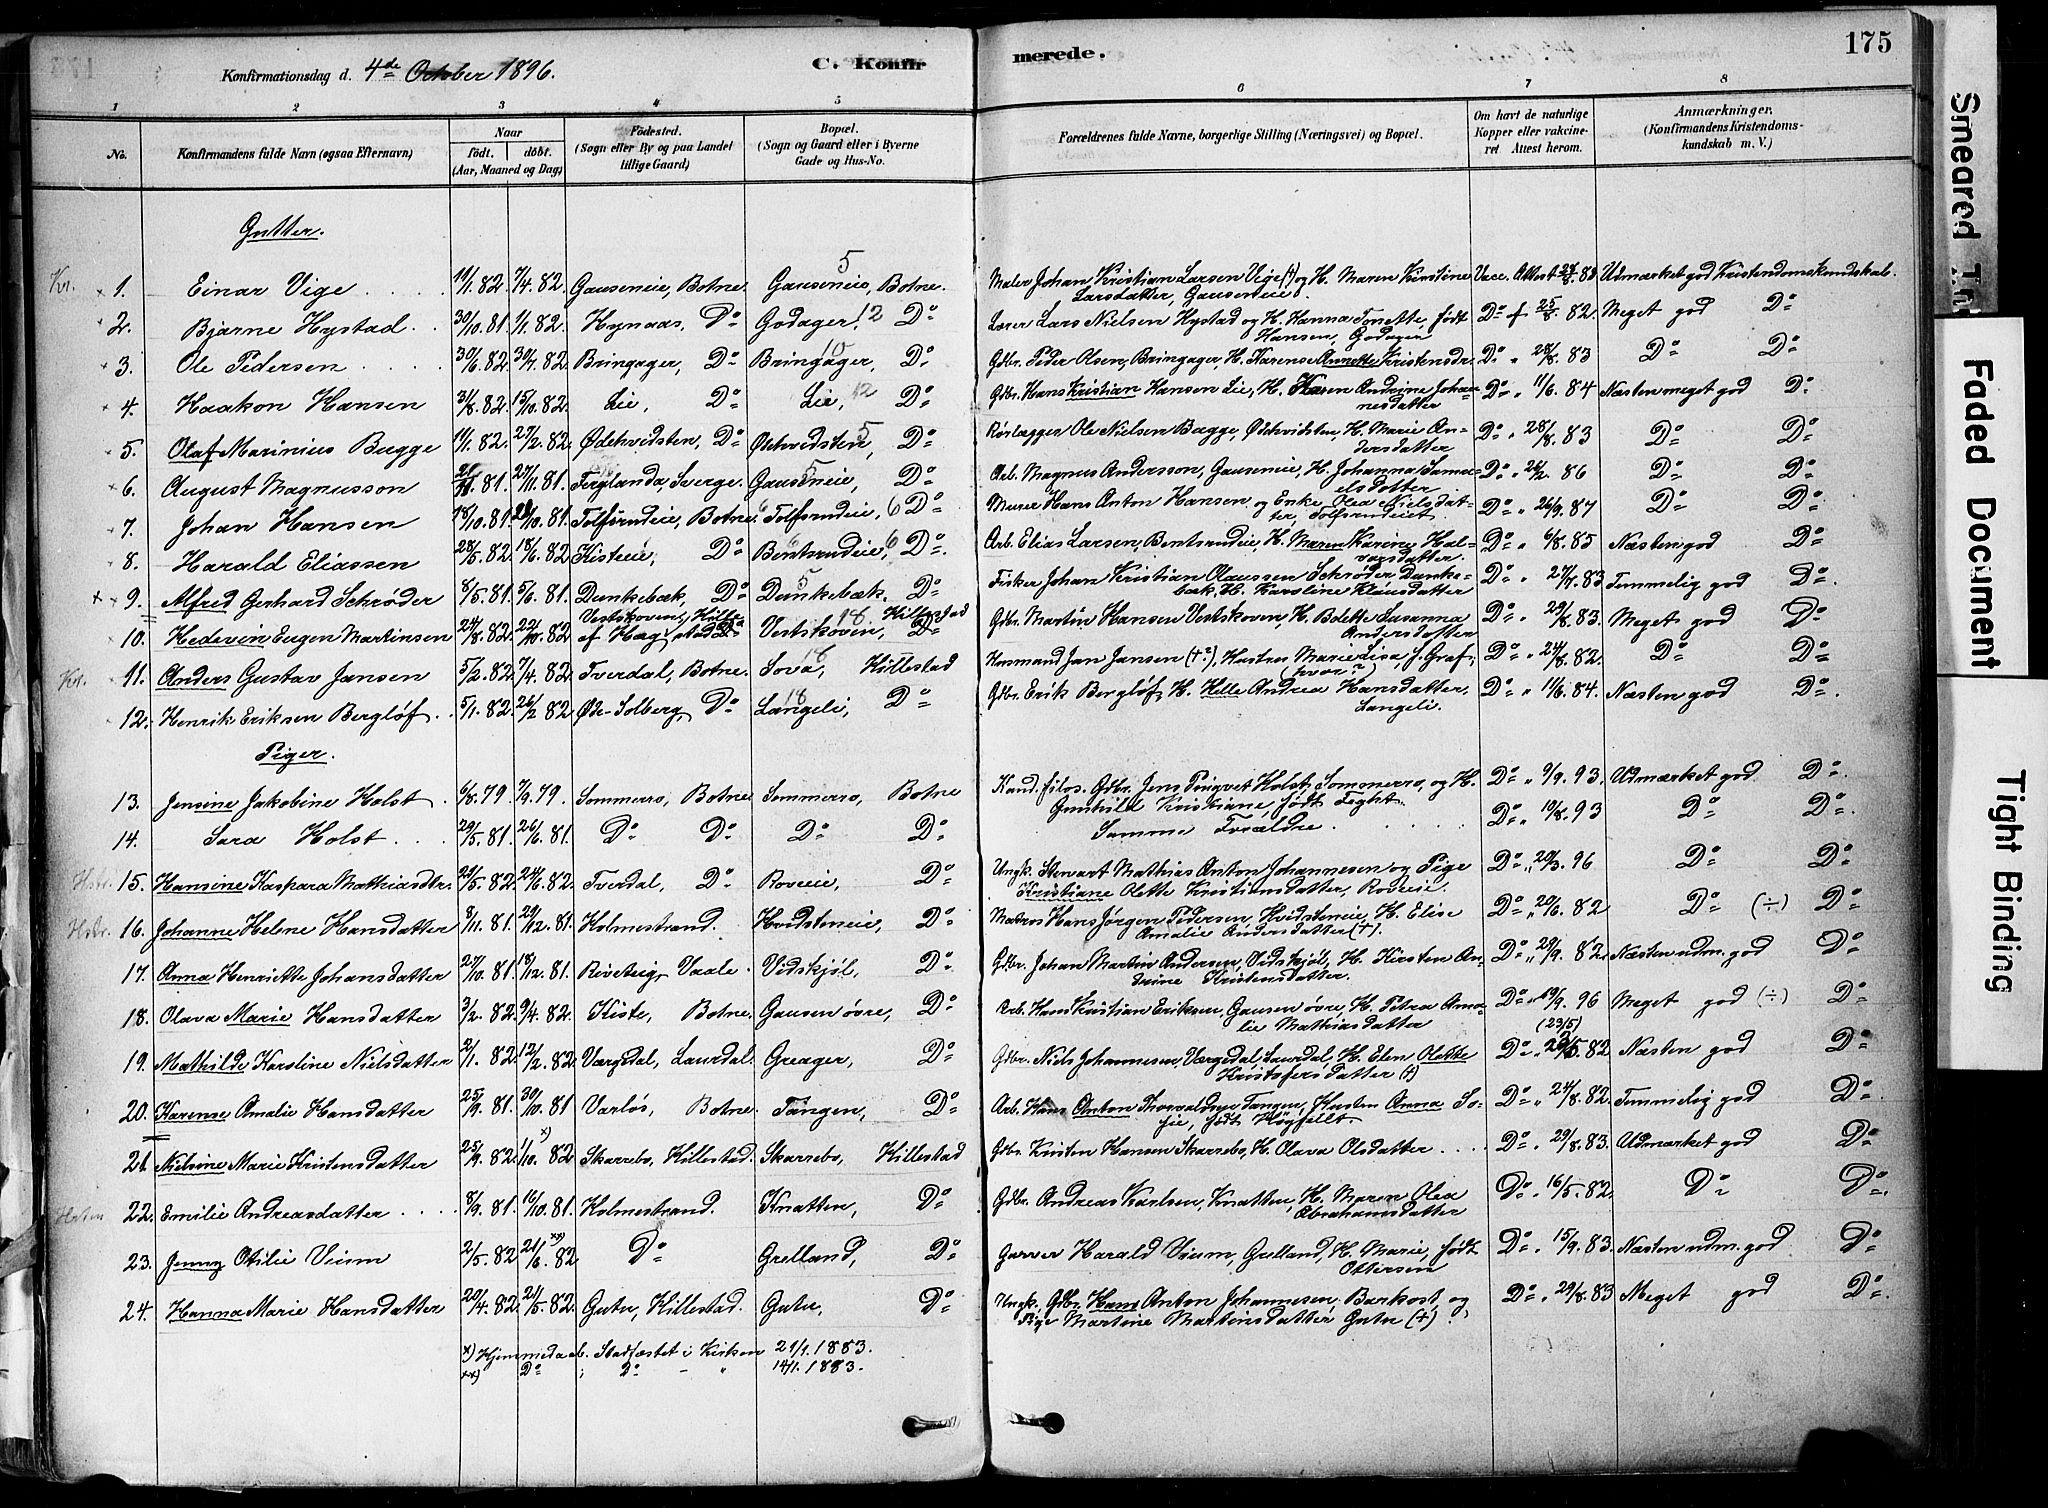 175
Konfirmationsdag d. 4de October 1896.
C. Konfir
merede.
1 2 3 4 5 6 7 8
No.
Konfirmandens fulde Navn (ogsaa Efternavn)
Naar
født. døbt.
(Aar, Maaned og Dag)
Fødested.
(Sogn eller By og paa Landet
tillige Gaard)
Bopæl.
(Sogn og Gaard eller i Byerne
Gade og Hus-No.
Forældrenes fulde Navne, borgerlige Stilling (Næringsvei) og Bopæl.
Om havt de naturlige
Kopper eller vakcine-
ret Attest herom.
Anmærkninger,
(Konfirmandens Kristendoms-
kundskab m. V.)
Gutter.
Kr. × 1. Einar Vige 7/4. 82. Gauseneie, Botne. 5 Gauseneie, Botne. Maler Johan Kristian Larsen Vige (+) og H. Maren Kirstine Vacc. Attest Udmærket god Kristendomskundskab.
Larsdatter, Gauseneie.
× 2. Bjarne Hystad 30/10. 81. 1/1. 82. Hynaas, Do Godager, 12 Do Lærer Lars Nielsen Hystad og H. Hanna Tonette, født Do 25/8. 82. Meget god Do
Hansen, Godager
× 3. Ole Pedersen 30/6. 82. 30/7. 82. Bringager, Do Bringager, 10 Do Gdbr. Peder Olsen, Bringager, H. Karense Annette Kristensdr. Do 28/8. 83 Do Do
× 4. Haakon Hansen 31/8. 82. 15/10. 82. Lie, Do Lie, 12 Do Gdbr. Hans Kristian Hansen Lie, H. Karen Andrine Johan- Do 11/6. 84 Næsten meget god Do
nesdatter
× 5. Olaf Marinius Bugge 11/1. 82. 27/2. 82. Ødehvidsten, Do Ødehvidsten, 5 Do Ole Nielsen Bugge, Ødehvidsten, H. Marie An- Do 28/8. 83 Do Do
dersdatter
× 6. August Magnusson 81. 27/11. 81. Ferglanda, Sverge. Gauseneie, 5 Do Arb. Magnus Andersson, Gauseneie, H. Johanna Samu- Do 86 Do Do
elsdotter
× 7. Johan Hansen 18/10. 81. 81. Tolfsrudeie, Botne. Tolfsrudeie, 6 Do Murer Hans Anton Hansen og Enke Olea Nielsdat- Do 26/9. 87 Do Do
ter, Tolfsrudeiet
× 8. Harald Eliassen 28/5. 82. 18/6. 82. Kisteeie, Do Bentsrudeie, 6 Do Arb. Elias Larsen, Bentsrudeie, H. Maren Karine Hal- Do 6/8. 85 Næsten god Do
vorsdatter
× × 9. Alfred Gerhard Schrøder 8/5. 81. 5/6. 81. Dunkebæk, Do Dunkebæk. 5 Do Fisker Johan Kristian Olaussen Schrøder Dunke- Do 27/7. 83 Temmelig god Do
bæk, H. Karoline Klausdatter
× 10. Hedevin Eugen Martinsen 24/8. 82. 22/10. 82. Vestskoven, Hille- Vestskoven, 18 Hillestad Gdbr. Martin Hansen Vestskoven H. Bolette Susanna Do 29/8. 83. Meget god Do
Andersdatter
Kr. 11. Anders Gustav Jansen 5/2. 82. 7/4. 82. Tverdal, Botne. Sova, 18 Hillestad Husmand Jan Jansen Marie Lisa, Do 24/8. 82. Do Do
12. Henrik Eriksen Bergløf 5/1. 82. 26/2. 82. Øde-Solberg, Do Langeli, 18 Do Gdbr. Erik Bergløf, H. Helle Andrea Hansdatter, Do 11/6. 84. Næsten god Do
Langeli.
Piger.
13. Jensine Jakobine Holst 6/8. 79 7/9. 79. Sommerro, Botne Sommerro, Botne Kand. filos. Gdbr. Jens Holst, Sommerro, og H. Do 9/9. 93. Udmærket god Do
Gunhild Kristiane, født
14. Sara Holst 29/5. 81. 26/6. 81. Do Do Do Do Samme Forældre Do 10/8. 93 Do Do
15. Hansine Kaspara Mathiasdtr. 29/5. 82. 24/6. 82. Tverdal, Do Roveeie, Do Ungk. Stervart Mathias Anton Johannesen og Pige Do 20/3. 96 Do Do
Kristiane Olette Kristiansdatter, Roveeie.
16. Johanne Helene Hansdatter 8/11. 81. 29/12. 81. Holmestrand. Hvidsteneie, Do Matros Hans Jørgen Pedersen, Hvidsteneie, H. Elise Do 20/6. 82 Do (÷) Do
Amalie Andersdatter (+).
17. Anna Henriette Johansdatter 27/10. 81. 18/12. 81. Vaale. Vidskjøl, Do Gdbr. Johan Martin Andersen, Vidskjøl, H. Kirsten An- Do 29/9. 82. Næsten udm. god Do
drine Kristensdatter.
18. Olava Marie Hansdatter 3/2. 82. 9/4. 82. Kiste, Botne. Gausen øvre, Do Arb. Hans Kristian Eriksen, Gausen øvre, H. Petra Ama- Do 19/9. 96 Meget god (÷) Do
lie Mathiasdatter
(23/5)
19. Mathilde Karoline Nielsdatter 2/1. 82. 12/2. 82. Værgsdal, Laurdal. Greager, Do Gdbr. Niels Johannesen Værgsdal Laurdal, H. Elen Olette Do 82 Næsten god Do
Kristofersdatter (+)
20. Karense Amalie Hansdatter 25/9. 81 30/10. 81 Varløs, Botne. Tangen, Do Arb. Hans Anton Thorvaldsen Tangen, Hustru Anna So- Do 24/8. 82. Temmelig god Do
fie, født
21. Nielsine Marie Kristensdatter 25/9. 82. 1/10. 82 x) Skarrebo, Hillestad. Skarrebo, Hillestad Gdbr. Kristen Hansen Skarrebo, H. Olava Olsdatter Do 29/8. 83. Udmærket god Do
22. Emilie Andreasdatter 8/9. 81. 16/10. 81. Holmestrand. Knatten, Do Gdbr. Andreas Karlsen, Knatten, H. Maren Olea Do 16/5. 82. Do Do
Abrahamsdatter
23. Jenny Otilie Vium 2/5. 82 21/6. 82 xx) Do Grelland, Do Garver Harald Vium, Grelland, H. Marie, født Do 15/9. 83. Næsten udm. god Do
Ottersen
24. Hanna Marie Hansdatter 20/4. 82. 21/5. 82. Gutu, Hillestad. Gutu, Do Ungk. Gdbr. Hans Anton Johannesen Barkost, og Do 29/8. 83 Meget god Do
Pige Martine Martinsdatter Gutu (+)
x) Hjemmedøbt. Stadfæstet i Kirken 21/1. 1883.
xx) Do ; Do - " 14/1. 1883.
Smeared
Faded Document
Tight Binding